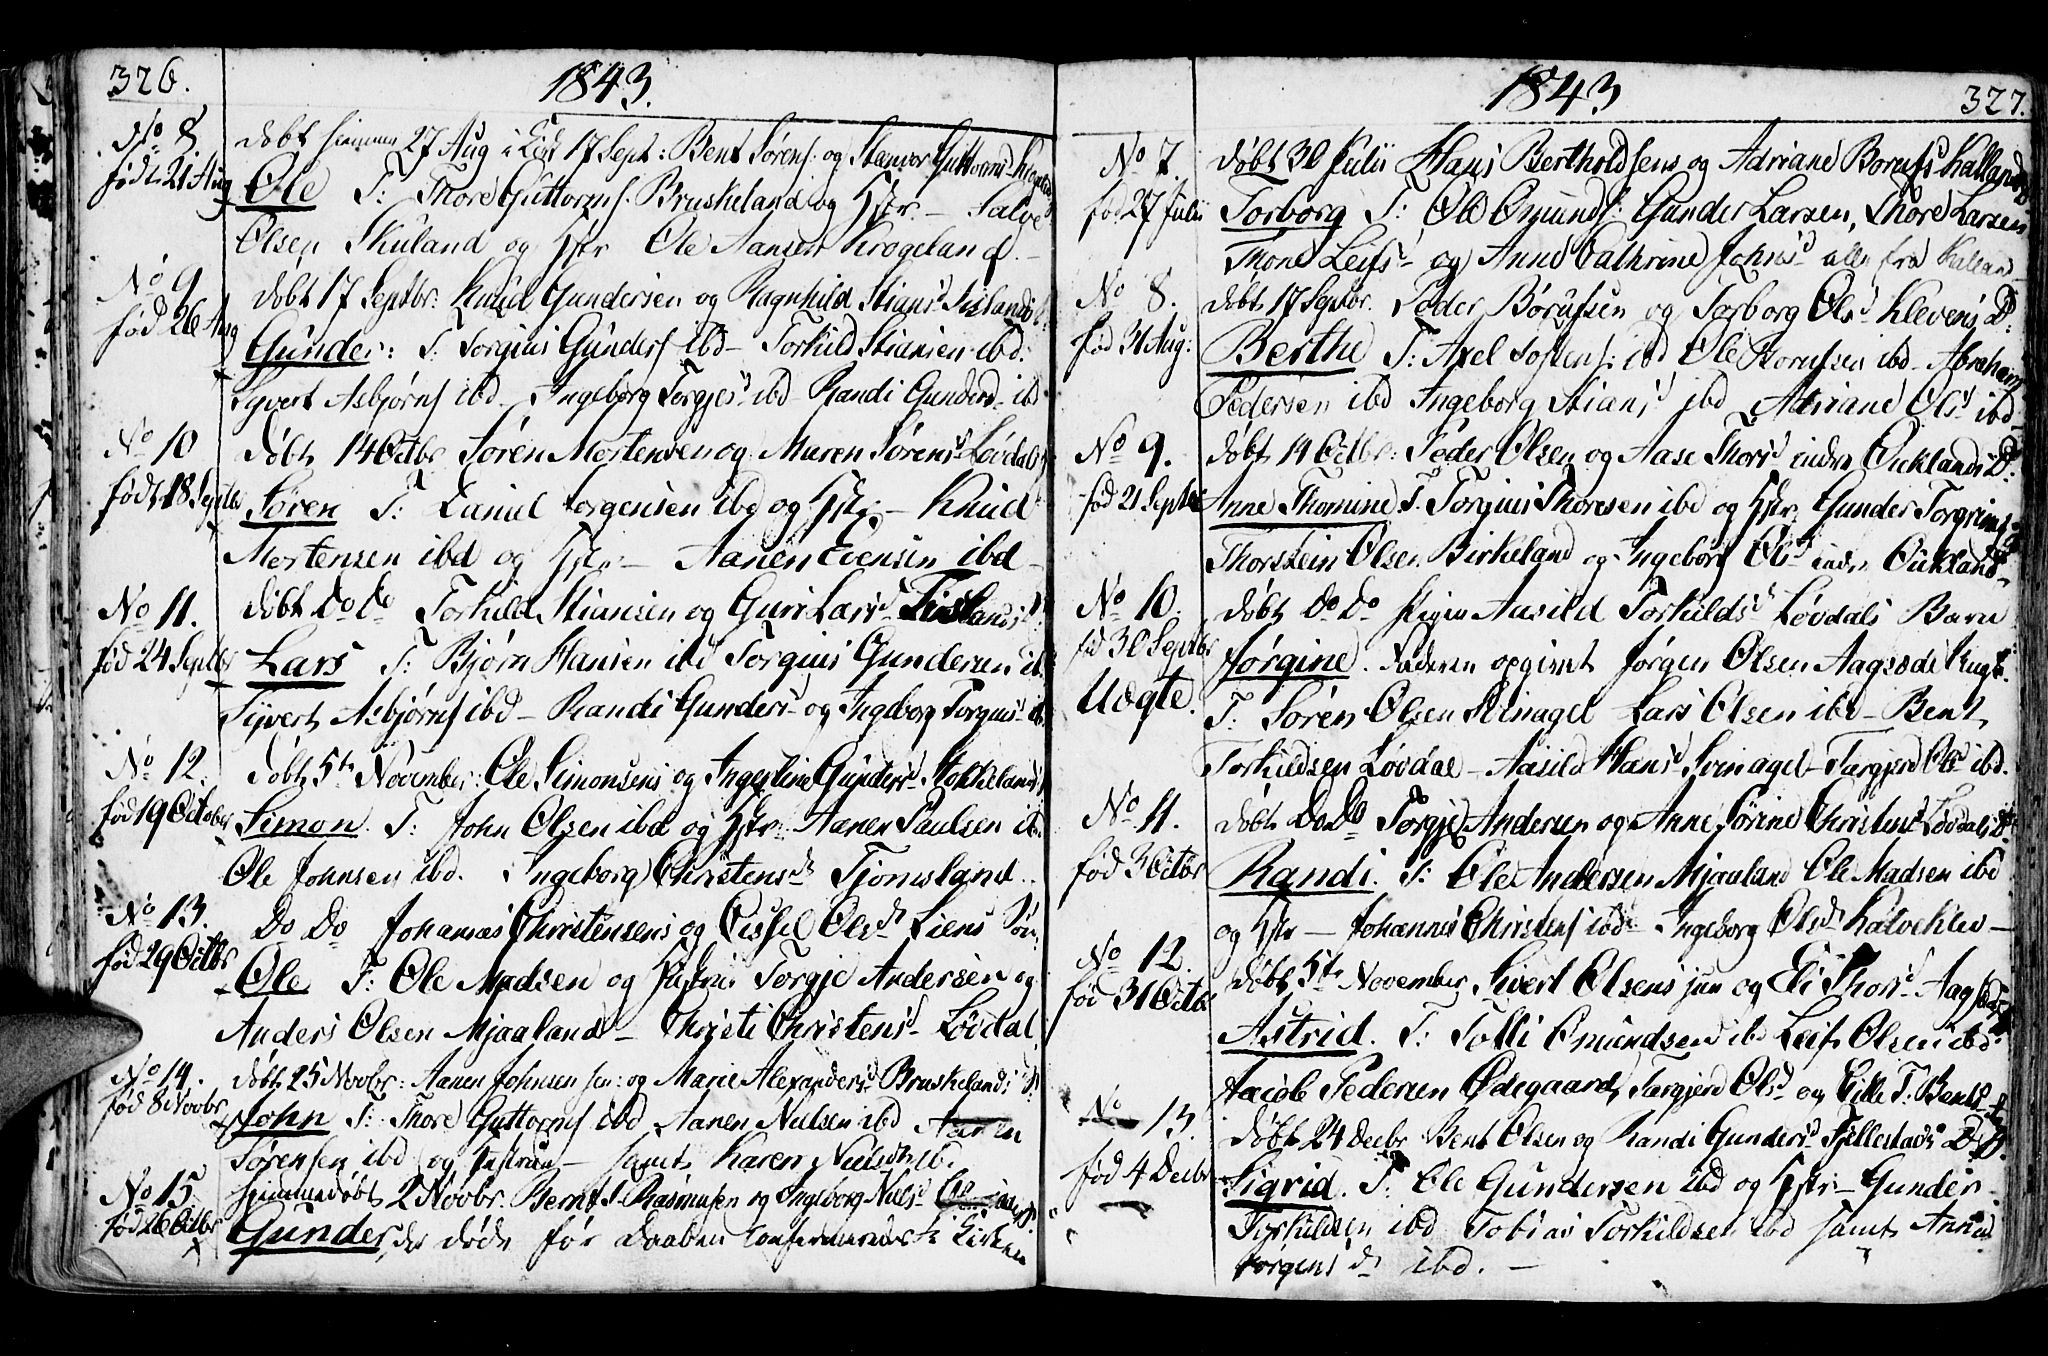 326.
1843.
No 8.
født 21 Aug
døbt hiemme 27 Aug i Kirk 17 Sept: Bent Sørens. og Guttormsd
Ole T: Thore Guttorms. Bruskeland og Hstr. – Salve
Olsen Skuland og Hstr Ole Aansen Krogeland. –
No 9
fød 26 Aug
døbt 17 Septbr: Knud Gundersen og Ragnhild Stiansd
Gunder: T: Torgius Gunders ibd – Torkild Stiansen ibd:
Syvert Asbjørns ibd – Ingeborg Torgjesd ibd – Randi Gundersd ibd
No 10
født 18 Septbr
døbt 14 Octbr Søren Mortensen og Maren Sørensd Løvdals
Søren T: Daniel Jørgensen ibd og Hstr – Knud
Mortensen ibd og Hstr – Aanen Evensen ibd –
No 11.
fød 24 Septbr
døbt Do Do Torkild Stiansen og Guri Larsd
Lars T: Bjørn Hansen ibd Torgius Gundersen ib
Syvert Asbjørns ibd – Randi Gundersd og Ingeborg Torgiusd ib
No 12.
fød 19 October
døbt 5te November: Ole Simonsens og Gundersd Stokkelands
Simon. T: John Olsen ibd og Hstr: Aanen Paulsen ib.
Ole Johnsen ibd. Ingeborg Christensd Tjomsland.
No 13.
fød 29 Octbr
Do Do Johannes Christensens og Cissel Olsd Liens Søn:
Ole T: Ole Madsen og Hustru Torgje Andersen og
Anders Olsen Mjaaland – Christi Christensd Løvdal
No 14.
fød 8 Novbr
døbt 25 Novbr: Aanen Johnsen sen: og Marie Alexandersd Bruskelands S.
John T: Thore Guttorms ibd Aanen Nielsen ibd Aanen
Sørensen ibd og Hustrue – samt Karen Nielsd ib.
No 15
fød 26 Octbr
hjemmedøbt 2 Novbr. Bernt T. Rasmusen og Ingeborg Nielsd
Gunder, der døde før Daaben confermeredes i Kirken
1843
327.
No 7.
fød 27 Julii
døbt 30 Julii Hans Bertholdsens og Adriane Borufsd Kallands
Torborg T: Ole Omunds: Gunder Larsen, Thore Larsen
Thone Leifsd og Anne Cathrine Johnsd alle fra Kalland
No 8.
fød 31 Aug:
døbt 17 Septbr. Peder Børufsen og Torborg Olsd Klevens D:
Berthe T: Axel Tostens: ibd Ole Borufsen ibd – Abraham
Pedersen ibd Ingeborg Stiansd ibd Adriane Olsd ibd
No 9.
fød 21 Septbr
døbt 14 Octbr: Peder Olsen og Aase Thorsd indre Øickland D:
Anne Thomine. T. Torgius Thoresen ibd og Hstr. Gunder Torgrims
Thorstein Olsen Birkeland og Ingeborg Olsd indre Øickland
No 10.
fød 30 Septbr
Uægte.
døbt Do Do Pigen Aasild Torkildsd Løvdals Barn
Jørgine. Faderen opgivet Jørgen Olsen Aagsæde
T: Søren Olsen Svinagel Lars Olsen ibd – Bent
Torkildsen Løvdal – Aasild Hansd Svinagel – Targjerd Olsd ibd.
No 11.
fød 3 Octbr
døbt Do Do Torgje Andersen og Anne Sørine Christensd Løvdals D:
Randi. T: Ole Andersen Mjaaland Ole Madsen ibd
og Hstr – Johannes Christens ibd – Ingeborg Olsd Kalvehlev –
No 12.
fød 31 Octbr
døbt 5te November Sivert Olsens jun og Eli Thorsd Aagsæde
Astrid. T: Tolli Omundsen ibd Leif Olsen ibd
Jacob Pedersen Ødegaard, Targjerd Olsd og T: Bentsd
No 13.
fød 4 Decbr
døbt 24 Decbr Bent Olsen og Randi Gundersd Fjellestads D.
Sigrid. T: Ole Gundersen ibd og Hstr – Gunder
Torkildsen ibd Tobias Torkildsen ibd samt Anne
Jørgensd ibd. –